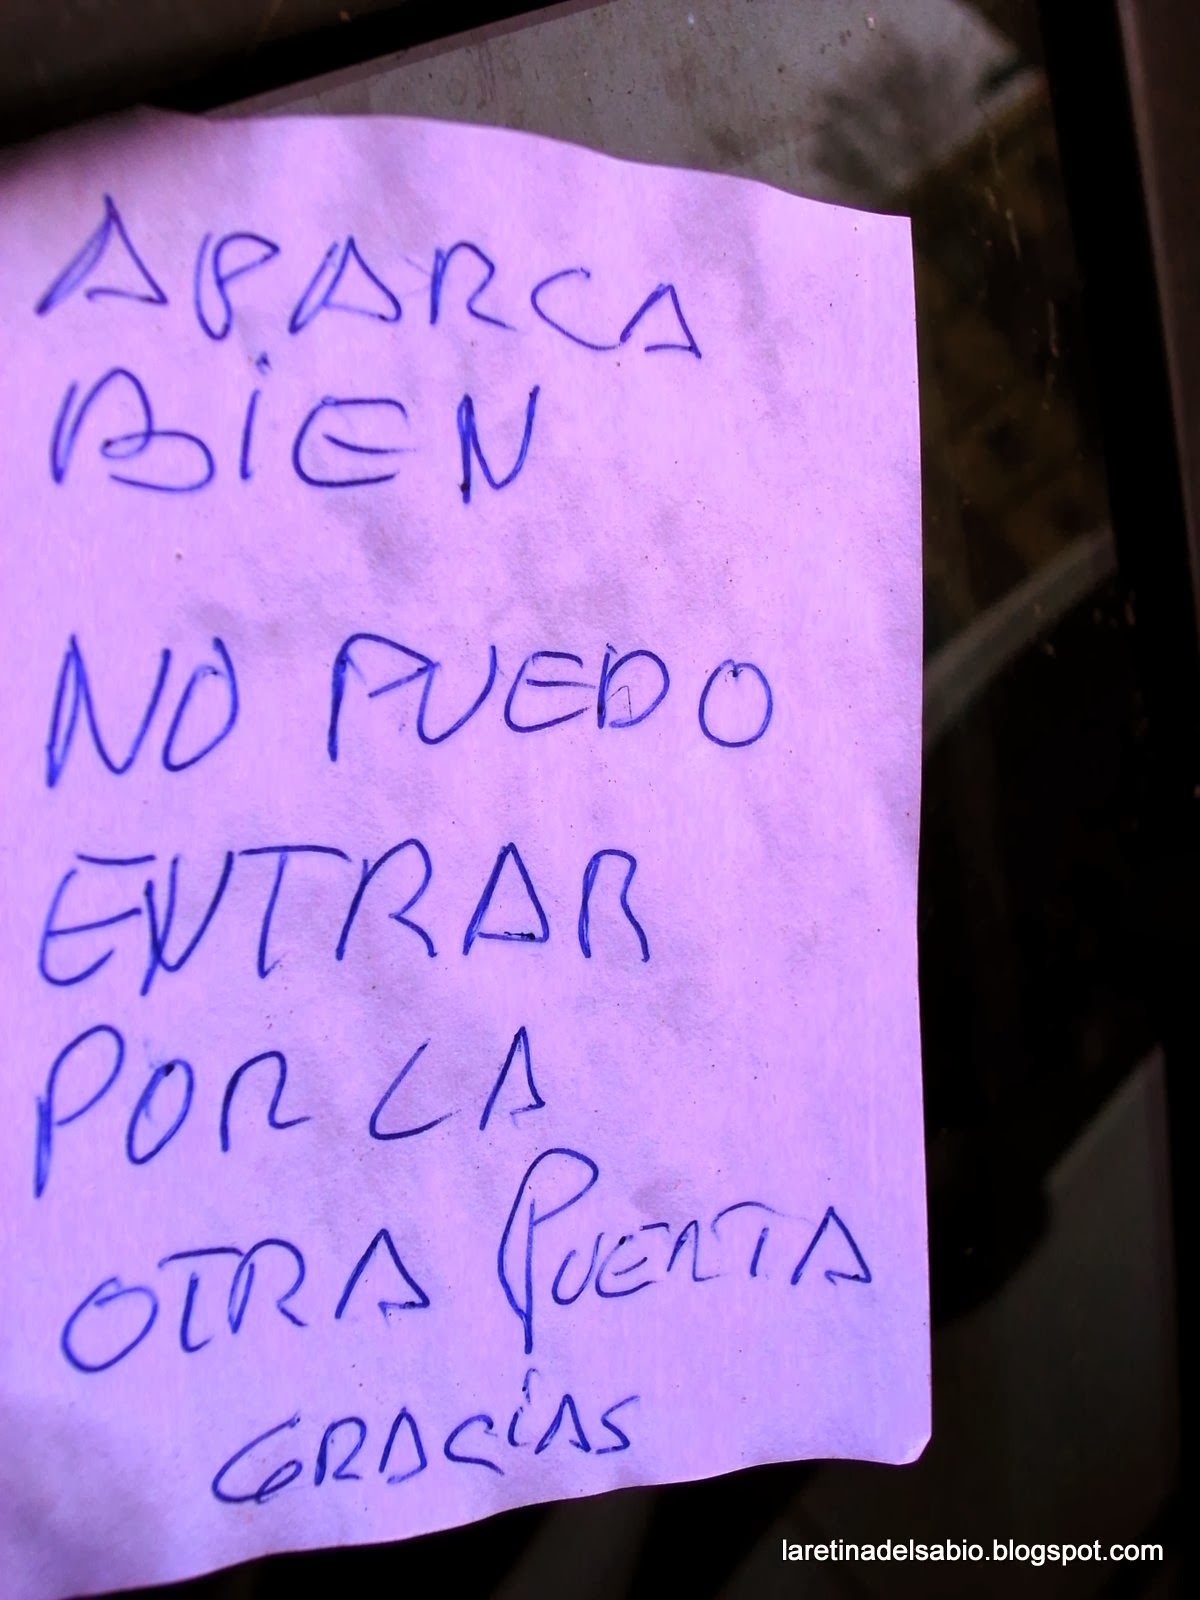 APARCA
BiEN
NO PUEDO
ENTRAR
POR LA
OTRA PUERTA
GRACiAS
laretinadelsabio.blogspot.com